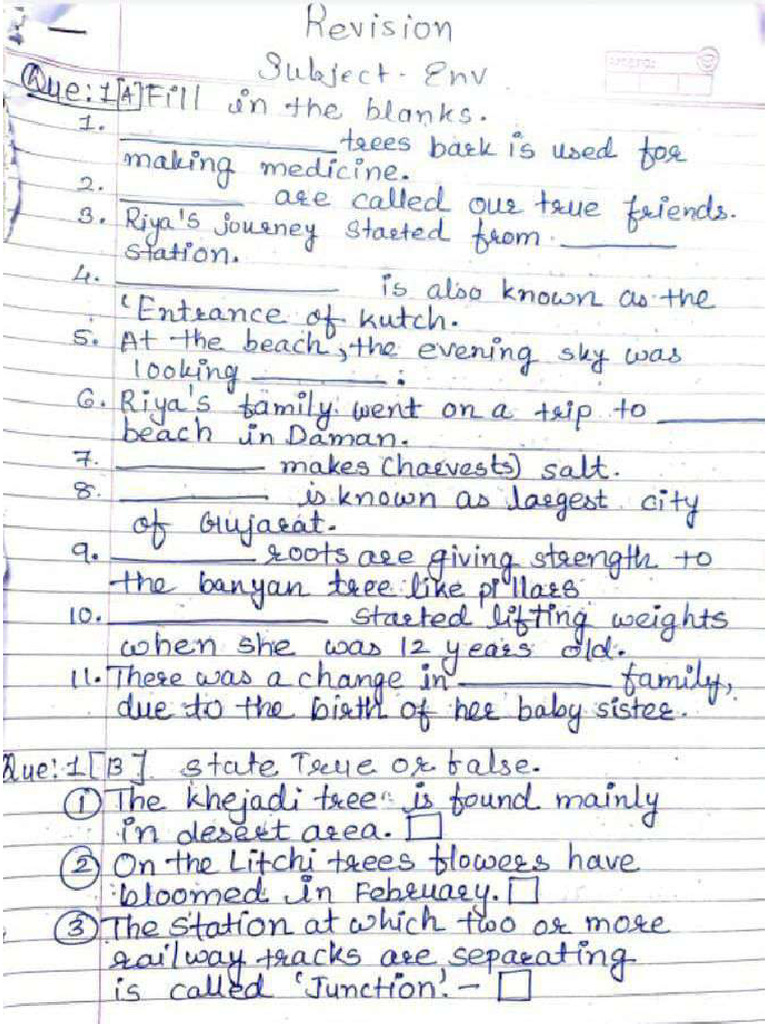 Revision
Subject - Env
Que: 1 [A] Fill in the blanks.
1. ____________ trees bark is used for
making medicine.
2. ____________ are called our true friends.
3. Riya's journey started from ____________
station.
4. ____________ is also known as the
'Entrance of Kutch.
5. At the beach, the evening sky was
looking ____________.
6. Riya's family went on a trip to ____________
beach in Daman.
7. ____________ makes (harvests) salt.
8. ____________ is known as largest city
of Gujarat.
9. ____________ roots are giving strength to
the banyan tree like pillars
10. ____________ started lifting weights
when she was 12 years old.
11. There was a change in ____________ family,
due to the birth of her baby sister.
Que: 1 [B] State True or false.
① The Khejadi tree is found mainly
in desert area. □
② On the Litchi trees flowers have
bloomed in February. □
③ The station at which two or more
railway tracks are separating
is called 'Junction'. - □